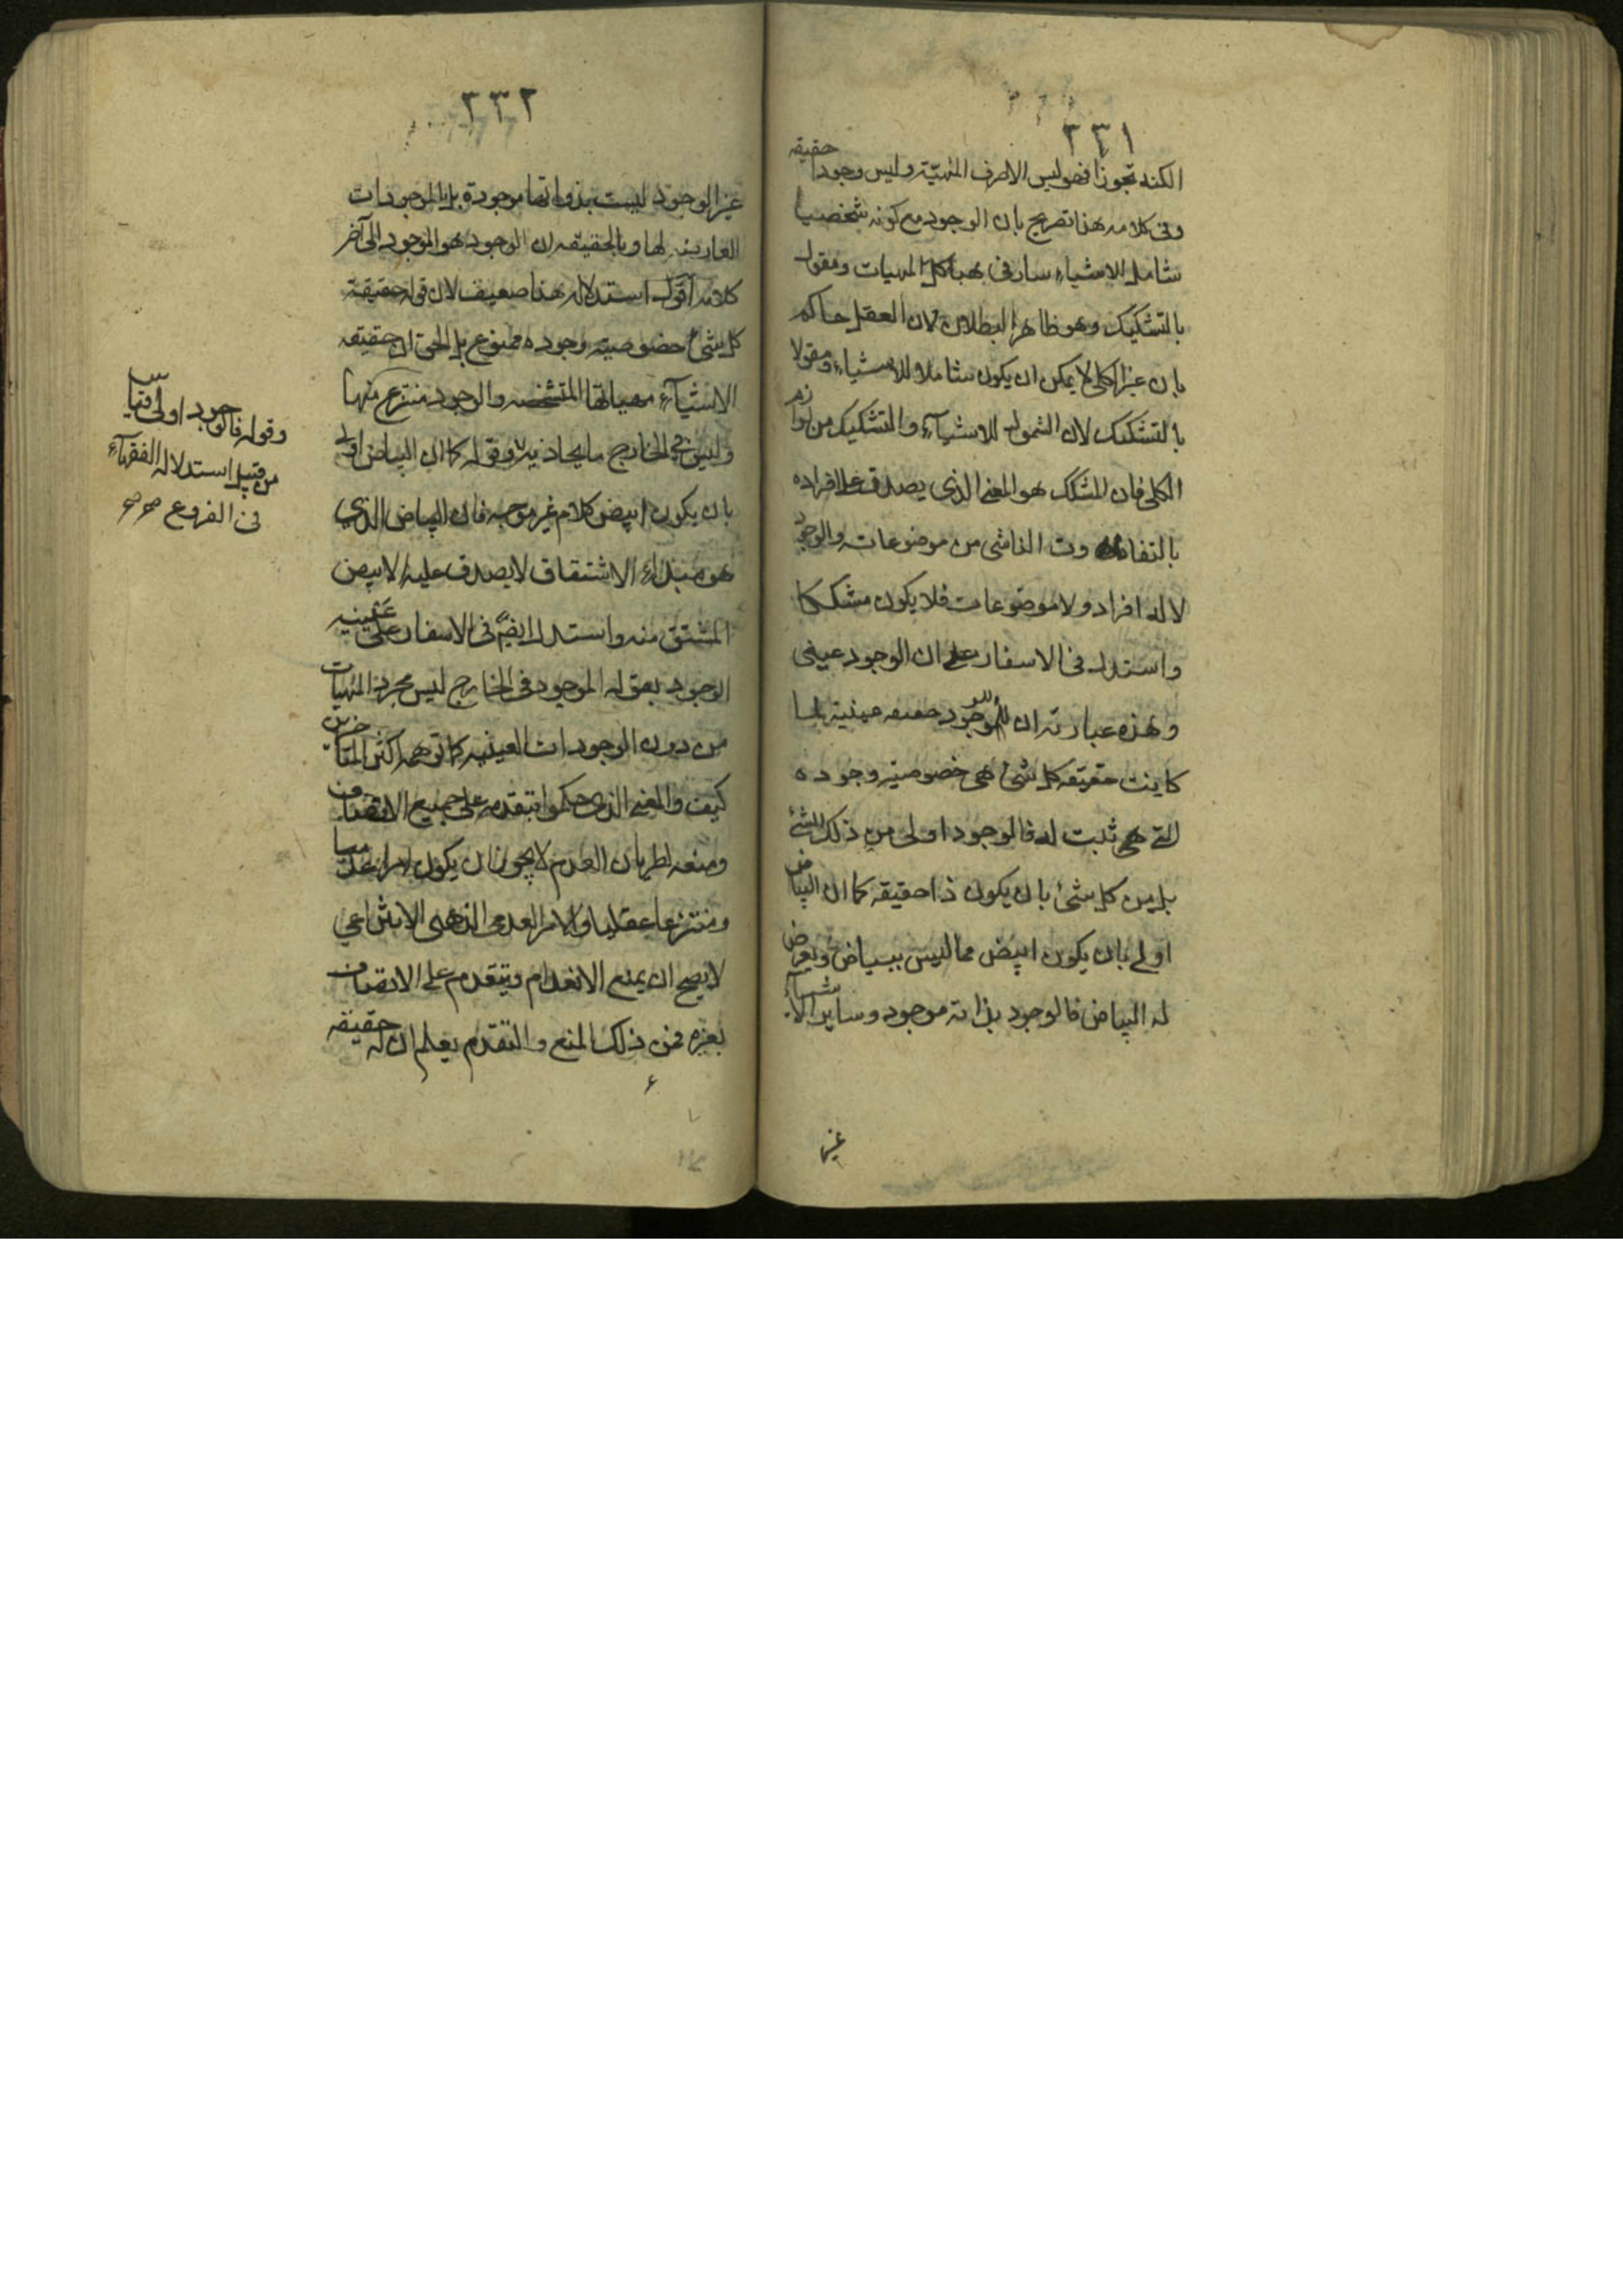 ٢٣١
الكنه تجوزا فهو ليس الا صرف المهيّة وليس وجودا حقيقه
وفى كلامه هذا تصريح بان الوجود مع كونه شخصيا
شامل للاشياء سار فى هياكل المهيات ومقول
بالتشكيك وهو ظاهر البطلان لان العقل حاكم
بان غير الكلى لا يمكن ان يكون شاملا للاشياء ومقولا
بالتشكيك لان الشمول للاشيآء والتشكيك من لوازم
الكلى فان المشكك هو المعنى الذى يصدق على افراده
بالتفاوت الناشى من موضوعاته والوجود
لا له افراد ولا موضوعات فلا يكون مشككا
واستدل فى الاسفار على ان الوجود عينى
وهذه عبارته ان للوجود حقيقه عينية لما
كاينت حقيقه كل شئ هى خصوصية وجوده
التى هى ثبت له فالوجود اولى من ذلك الشئ
بل من كل شئ بان يكون ذا حقيقه كما ان البياض
اولى بان يكون ابيض مما ليس ببياض ويعرض
له البياض فالوجود بذاته موجود وساير الاشيآء
غير
٢٣٢
غير الوجود ليست بذواتها موجودة بل بالموجودات
العارضه لها وبالحقيقه ان الوجود هو الموجود الى آخر
كلامه اقول استدلاله هذا ضعيف لان قوله حقيقة
كل شئ خصوصية وجوده ممنوع بل الحق ان حقيقه
الاشيآء مهياتها المتشخصه والوجود منتزع منها
وليس فى الخارج ما يحاذيه وقوله كما ان البياض اولى
بان يكون ابيض كلام غير موجه فان البياض الذى
هو مبداء الاشتقاق لا يصدق عليه الابيض
المشتق منه واستدل ايضً فى الاسفار على عينيه
الوجود بقوله الموجود فى الخارج ليس مجرد المهيات
من دون الوجودات العينيه كما توهمه اكثر المتأخرين
كيف والمعنى الذى حكموا بتقدمه على جميع الاتصاف
ومنعه لطريان العدم لا يجوز ان يكون امرا عدميا
ومنتزعا عقليا والامر العدمى الذهنى الانتزاعي
لا يصح ان يمنع الانعدام ويتقدم على الاتصاف
بغيره فمن ذلك المنع والتقدم يعلم ان له حقيقه
وقوله فالوجود اولى قياس
من قبيل استدلال الفقهآء
فى الفروع